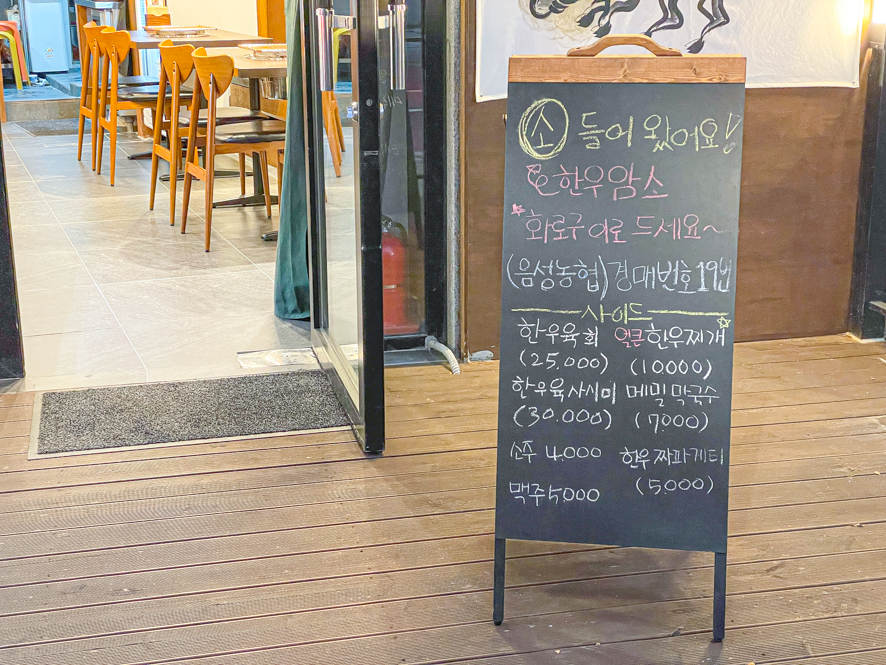 소 들어 왔어요!
한우암소
화로구이로 드세요~
(음성농협)경매번호19번
사이드
한우육회 얼큰한우찌개
(25.000) (10000)
한우육사시미 메밀막국수
(30.000) (7.000)
소주 4.000 한우짜파게티
맥주 5000 (5.000)